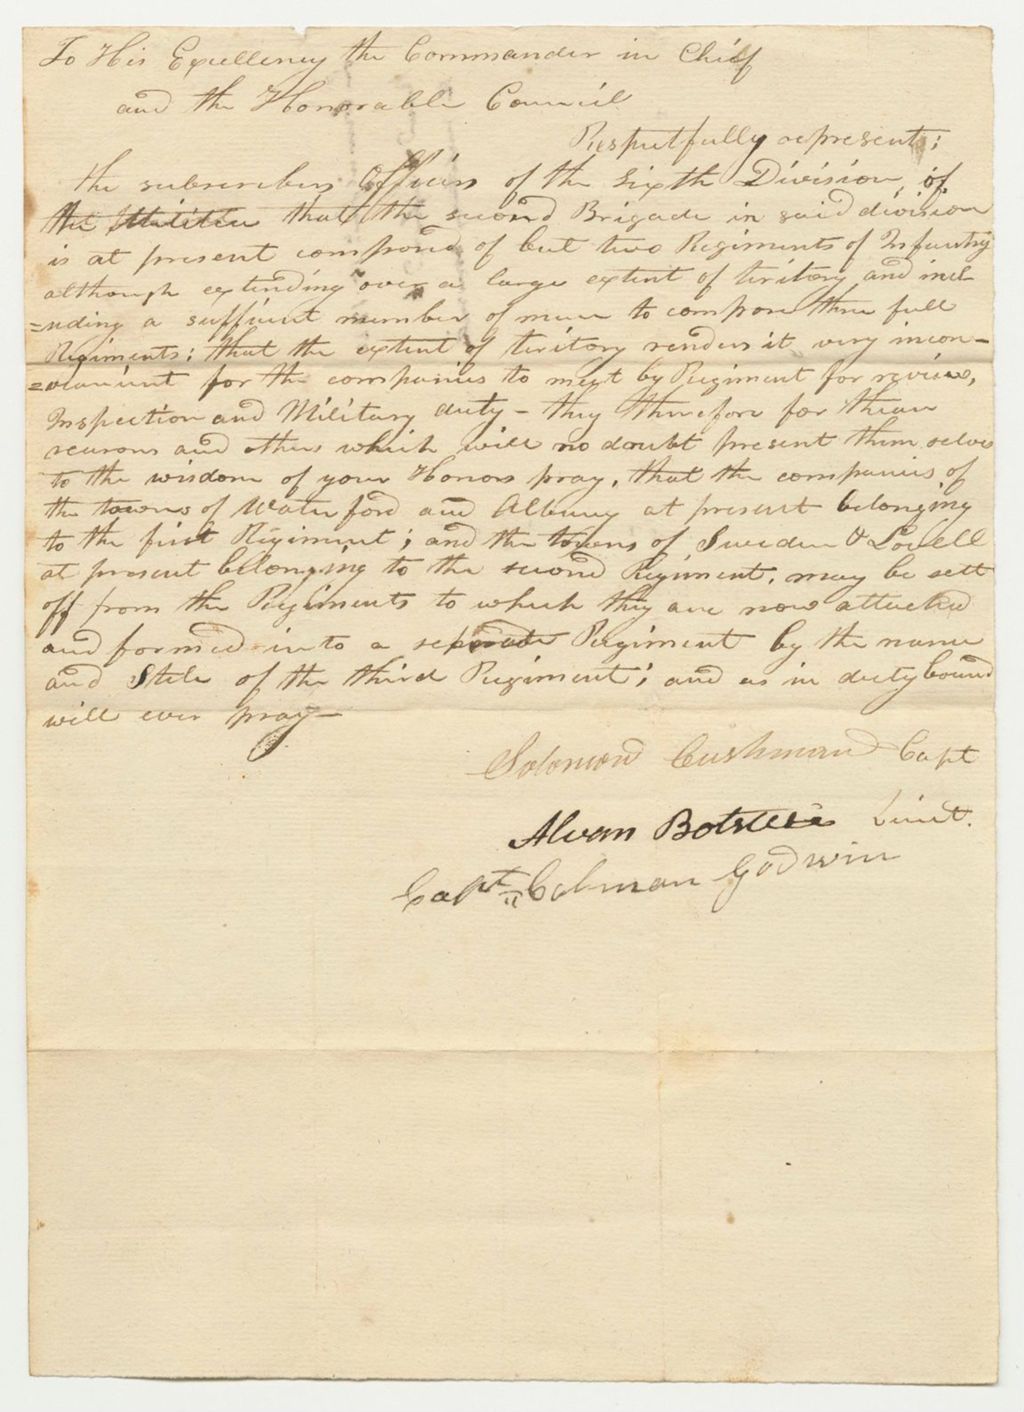 To His Excellency the Commander in Chief
and the Honorable Council
Respectfully represent;
the subscribers Officers of the Sixth Division, of
the Militia that the second Brigade in said division
is at present composed of but two Regiments of Infantry
although extending over a large extent of teritory and incl
=uding a sufficient number of men to compose three full
Regiments; that the extent of teritory renders it very incon-
=veanient for the companies to meet by Regiment for review,
Inspection and Military duty - they therefore for thease
reasons and others which will no doubt present them selves
to the wisdom of your Honors pray, that the companies of
the towns of Waterford and Albany at present belonging
to the first Regiment; and the towns of Sweden & Lovell
at present belonging to the second Regiment, may be sett
off from the Regiments to which they are now attached
and formed into a seperate Regiment by the name
and Stile of the third Regiment; and as in duty bound
will ever pray-
Solomon Cushman Capt
Alvan Lieut.
Capt. Calman Godwin